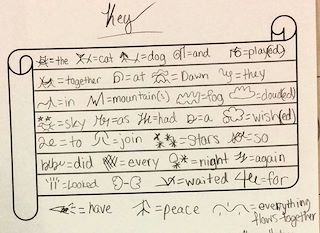 Key
=the =cat =dog =and =play(ed)
=together =at =Dawn =they
=in =mountain(s) =fog =cloud(ed)
=sky =as =had =a =wish(ed)
=to =join =stars =so
=did =every =night =again
=looked = =waited =for
=have =peace =everything
flows together